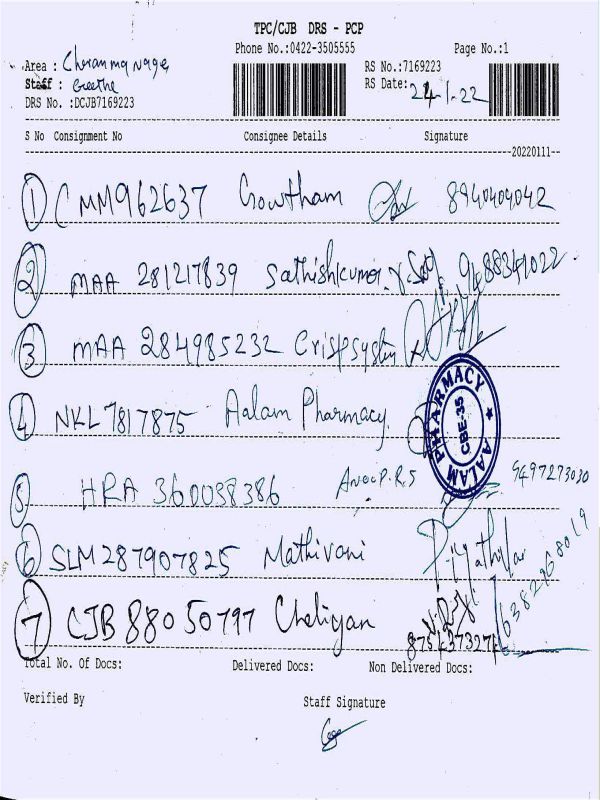 TPC/CJB DRS - PCP
Phone No.:0422-3505555 Page No.:1
Area : Cheranma nage RS No.:7169223
Staff : Geethe RS Date: 24-1-22
DRS No. :DCJB7169223
S No Consignment No Consignee Details Signature
20220111
1 CMM962637 Gowtham 8940404042
2 MAA 281217839 Sathishkumar.V 9488341022
3 MAA 284985232 Crispsystem
4 NKL 7817875 Aalam Pharmacy
AALAM PHARMACY CBE-35
5 HRA 360038386 Anoop.R.S 9497273030
6 SLM287907825 Mathivani 6382968019
7 CJB 88050797 Cheligan
Total No. Of Docs: Delivered Docs: Non Delivered Docs:
Verified By Staff Signature